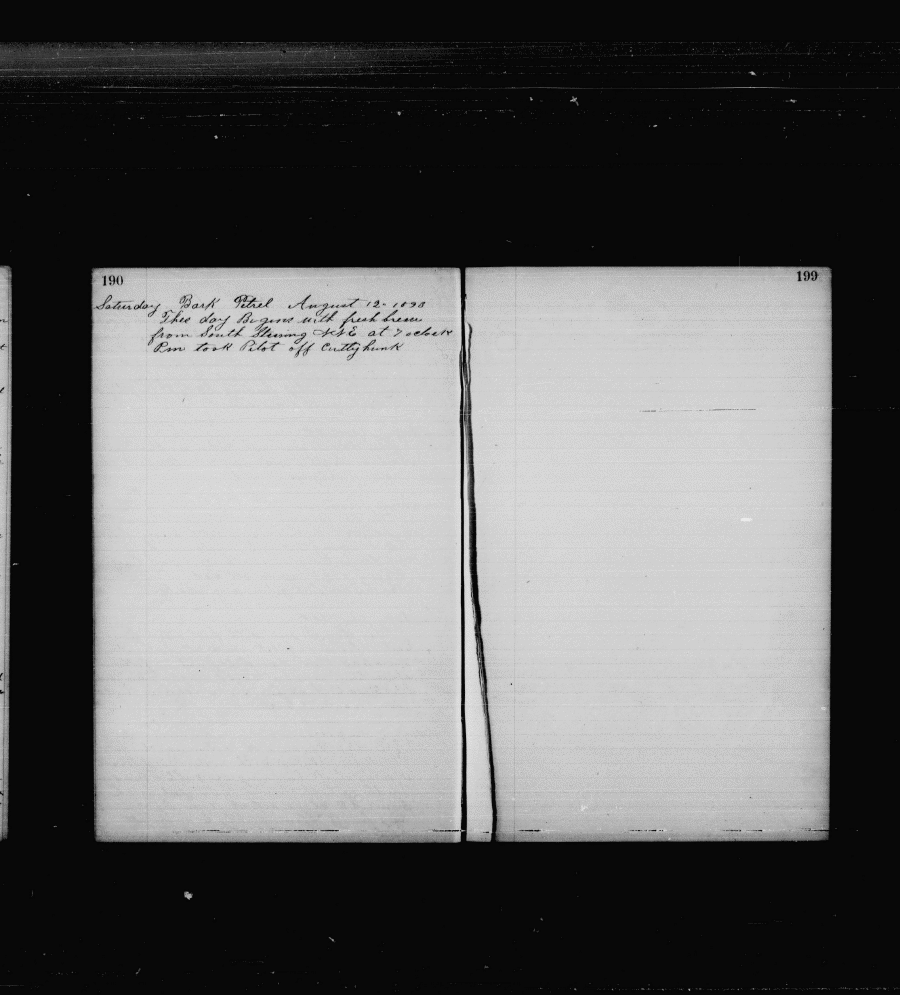 190
Saturday Bark Petrel August 12- 1893
This day Begins with fresh breese
from South Stering NNE at 7 oclock
P.m took Pilot off Cuttyhunk
199